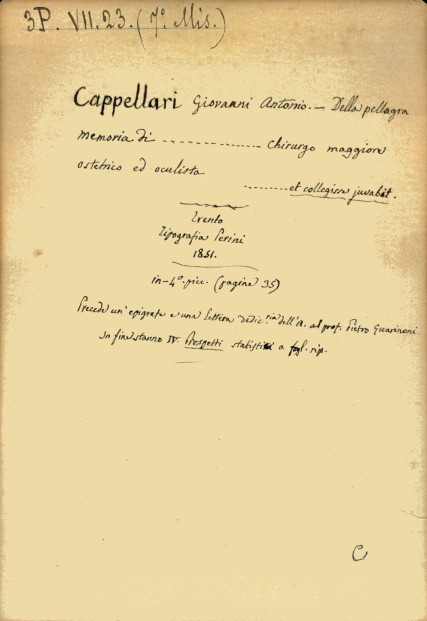 3P. VII. 23. (7º Mis.)
Cappellari Giovanni Antonio. — Della pellagra
memoria di ------------------ chirurgo maggiore
ostetrico ed oculista
--------- et collegisse juvabit.
Trento
Tipografia Perini
1851.
in-4º. picc. (pagine 35)
Precede un'epigrafe e una lettera dedic.ria dell'A. al prof. Pietro Guarinoni
In fine stanno IV. Prospetti statistici a fogl. rip.
C